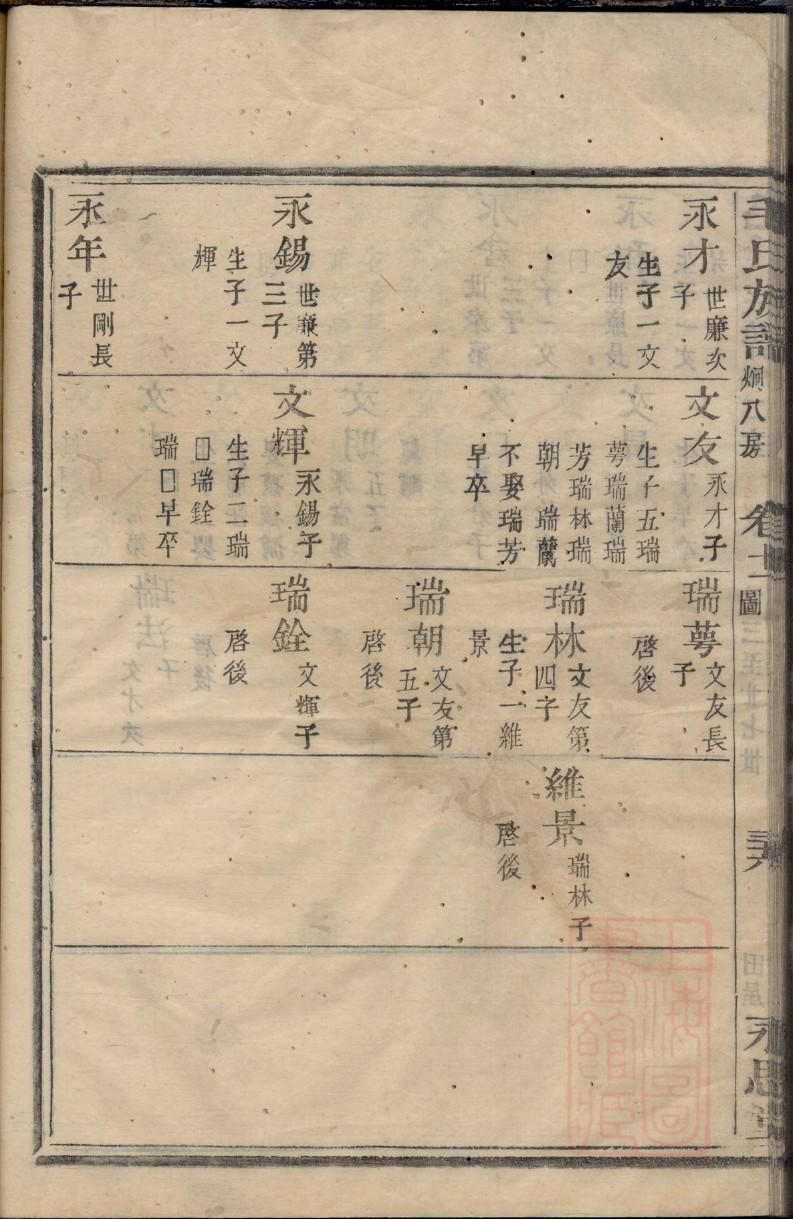 毛氏族譜
炯八房
卷十二
圖三至廿七世
田屋
永思堂
永才
世廉次
子
生子一文
友
永錫
世亷第
三子
生子一文
輝
永年
世剛長
子
文友
永才子
生子五瑞
萼瑞蘭瑞
芳瑞林瑞
朝 瑞蘭
不娶瑞芳
早卒
文輝
永錫子
生子二瑞
□瑞銓
瑞□早卒
瑞萼
文友長
子
啓後
瑞林
文友第
四字
生子一維
景
瑞朝
文友第
五子
啓後
瑞銓
文輝子
啓後
維景
瑞林子
啓後
上海圖
書館藏